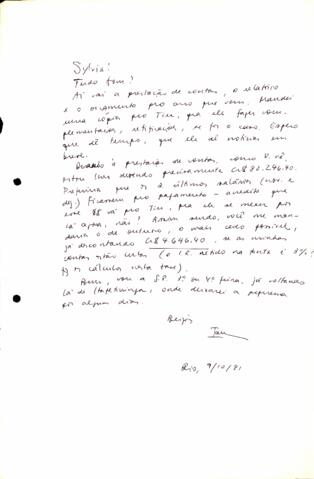 Sylvia!
Tudo bem?
Aí vai a prestação de contas, o relatório
e o orçamento pro ano que vem. Mandei
uma cópia pro Tim, pra ele fazer com-
plementações, retificações, se for o caso. Espero
que dê tempo, que ele dê notícias em
breve.
Quanto à prestação de contas, como v. vê,
estou lhes devendo precisamente Cr$
Preferiria que os 2 últimos salários (nov. e
dez.) ficassem pro pagamento - acredito que
esse vá pro Tim, pra ele se mexer por
lá agora, não? Assim sendo, você me man-
daria o de outubro, o mais cedo possível,
já descontando Cr$ 4.646,40, se as minhas
contas estão certas (o I.R. retido na fonte é
os cálculos nesta base).
Bem, vou a S.P. 3ª ou 4ª feira, já voltando
lá de Itapetininga, onde deixarei a pequena
por alguns dias.
Beijos
Rio, 9/10/81